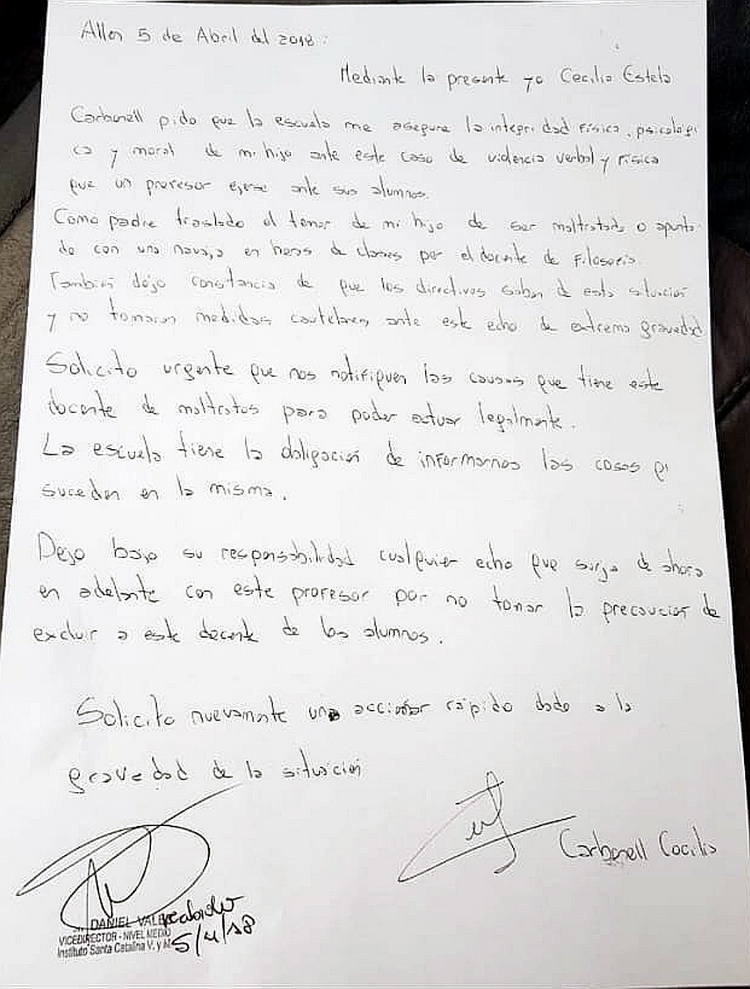 Allen 5 de Abril del 2018:
Mediante la presente yo Cecilia Estela
Carbonell pido que la escuela me asegure la integridad física, psicologi
ca y moral de mi hijo ante este caso de violencia verbal y física
que un profesor ejerse ante sus alumnos.
Como padre traslado el temor de mi hijo de ser maltratado o apunta
do con una navaja en horas de clases por el docente de Filosofia.
También dejo constancia de que los directivos saben de esta situación
y no tomaron medidas cautelares ante este echo de extrema gravedad
Solicito urgente que nos notifiquen las causas que tiene este
docente de maltratos para poder actuar legalmente.
La escuela tiene la obligación de informarnos las cosas q'
suceden en la misma.
Dejo bajo su responsabilidad cualquier echo que surja de ahora
en adelante con este profesor por no tomar la precaución de
excluir a este docente de los alumnos.
Solicito nuevamente una accionar rápido dado a la
gravedad de la situación
Carbonell Cecilia
recibido
DANIEL
VICEDIRECTOR - NIVEL MEDIO
Instituto Santa Catalina V. y M.
5/4/18